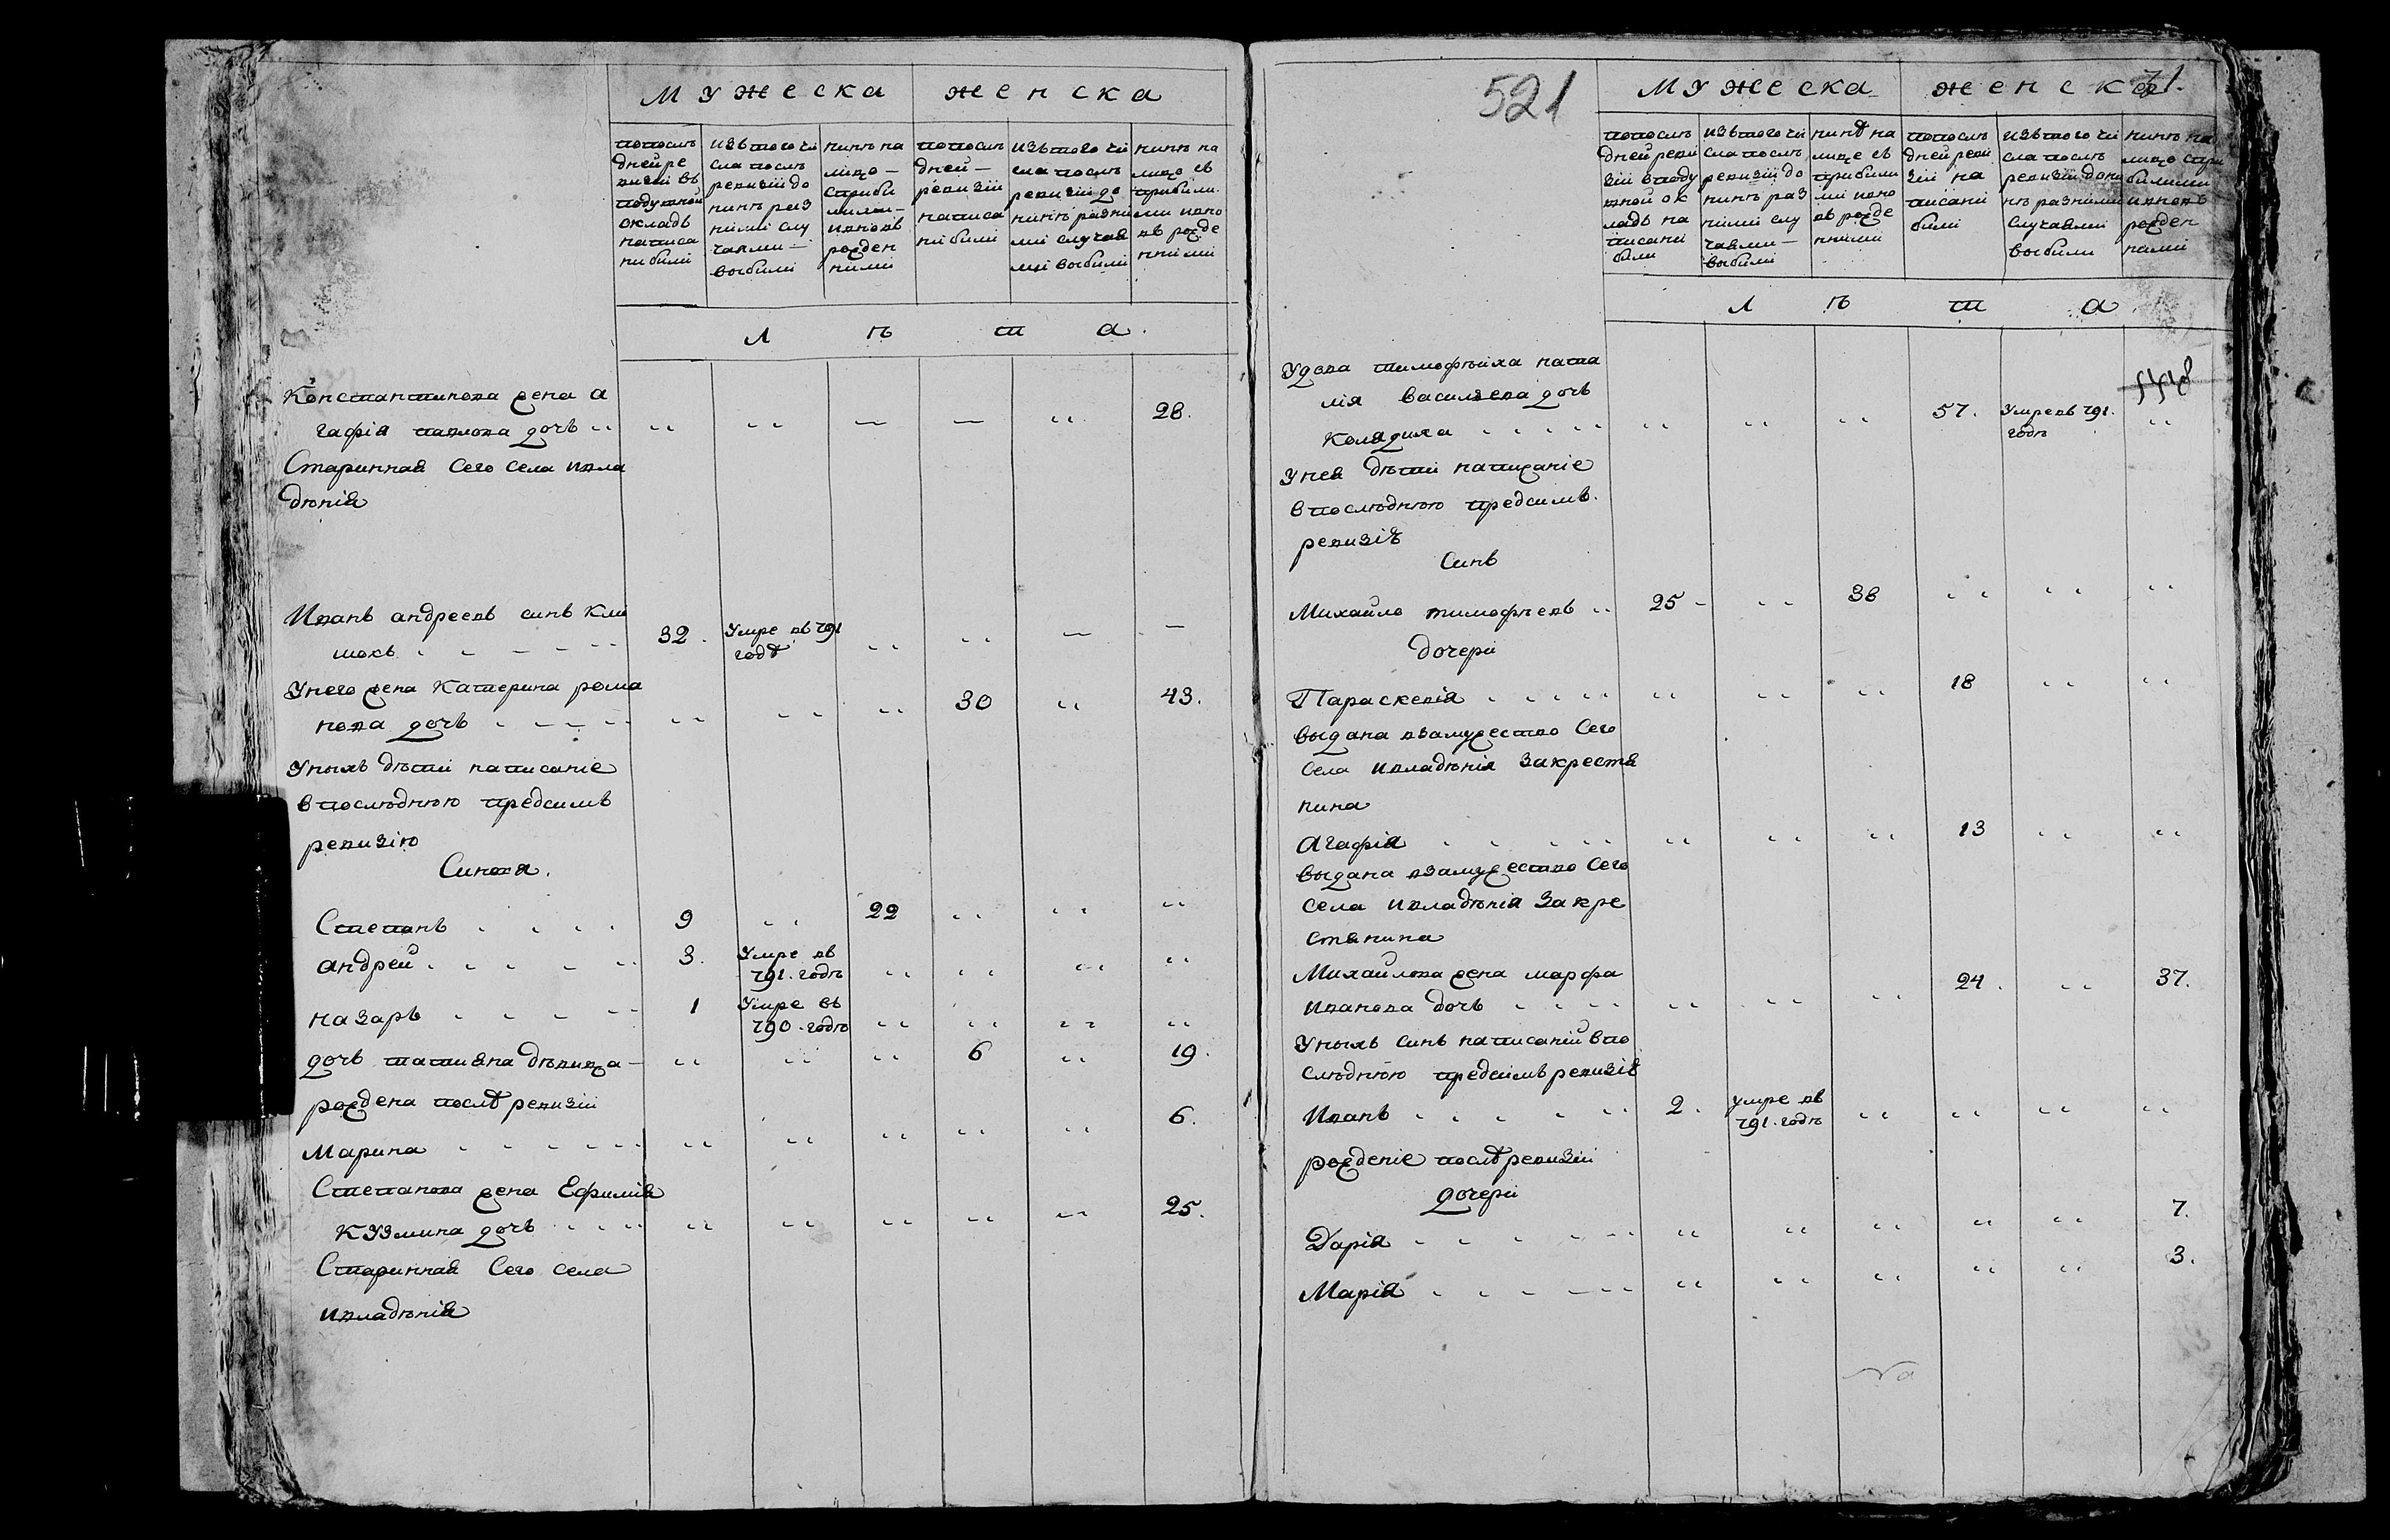 Мужеска женска
попослѣ
дней ре
визіи въ
подушной
окладъ
написа
ни були
изъ того чи
сла послѣ
ревизіи до
нинѣ раз
ними слу
чаями —
выбыли
нинѣ на
лицо —
спрыбы
лыми —
и вновь
рожден
ними
попослѣ
дней —
ревизіи
написа
ни були
изъ того чи
сла послѣ
ревизіи до
нинѣ разни
ми случая
ми выбыли
нинѣ на
лицо съ
прибили
ми и вно
въ рожде
нними
л ѣ т а.
Константинова жена а
гафія павлова дочь 28.
Старинная сего села и вла
дѣнія
Иванъ андреевъ синъ Кли
шокъ 32. Умре въ 791
годѣ
У него жена Катерина рома
нова дочь 30 43.
У ныхъ дѣти написаніе
в послѣднюю предсимъ
ревизію
Синовя.
Степанъ 9 22
андрей 3. Умре въ
791. годѣ
назаръ 1 Умре въ
790. годѣ
дочь татияна дѣвица — 6 19.
рождена послѣ ревизіи
Марина 6.
Степанова жена Ефимія
Кузмина дочь 25.
Старинная Сего села
и владѣнія
521
Мужеска женска
71.
попослѣ
дней реви
зіи в поду
шной ок
ладъ на
писани
були
изъ того чи
сла послѣ
ревизіи до
нинѣ раз
ними слу
чаями —
выбыли
нинѣ на
лице съ
прибили
ми и вно
въ рожде
нними
попослѣ
дней реви
зіи на
писани
били
изъ того чи
сла послѣ
ревизіи дони
нѣ разними
случаями
выбыли
нинѣ на
лицо спри
билими
и вновь
рожден
ними
л ѣ т а
Удова тимофѣиха ната
лія василѣева дочь
Колядиха 57. Умре въ 791.
годѣ
У нея дѣти написаніе
в послѣднюю предсимъ
ревизіѣ
Синъ
Михайло тимофѣевъ 25 38
дочери
Параскевія 18
выдана взамужество Сего
Села и владѣнія За крестя
нина
Агафія 13
выдана взамужество Сего
села и владѣнія За кре
стянина
Михайлова жена марфа
Иванова дочь 24. 37.
У ныхъ синъ написаній в по
слѣднюю предсимъ ревизіѣ
Иванъ 2. умре въ
791. годѣ
рожденіе послѣ ревизіи
дочери
Дарія 7.
Марія 3.